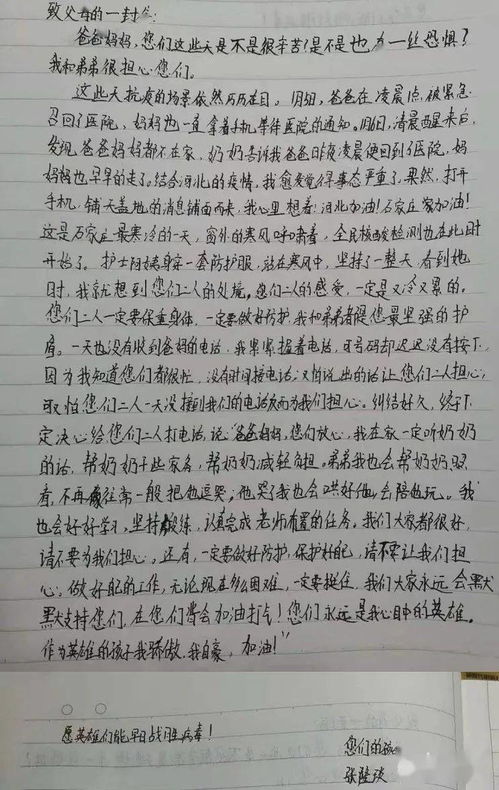 致父母的一封信:
爸爸妈妈,您们这些天是不是很辛苦?是不是也有一丝恐惧?
我和弟弟很担心您们。
这些天抗疫的场景依然历历在目。1月5日,爸爸在凌晨1点,被紧急
召回了医院,妈妈也一直拿着手机等待医院的通知。1月6日,清晨醒来后,
发现爸爸妈妈都不在家,奶奶告诉我爸爸昨夜凌晨便回到了医院,妈
妈妈也早早的走了。结合河北的疫情,我愈发觉得事态严重了,果然,打开
手机,铺天盖地的消息铺面而来,我心里想着:河北加油!石家庄加油!
这是石家庄最寒冷的一天,窗外的寒风呼啸着,全民核酸检测也在此时
开始了。护士阿姨身穿一套防护服,站在寒风中,坚持了一整天,看到她
时,我就想到您们二人的处境。您们二人的感受,一定是又冷又累的。
您们二人一定要保重身体,一定要做好防护,我和弟弟都是您最坚强的护
盾。一天也没有收到爸妈的电话,我紧紧握着电话,可号码却迟迟没有按下,
因为我知道您们都很忙,没有时间接电话;又怕说出的话让您们二人担心,
更怕您们二人一天没接到我们的电话反而为我们担心。纠结好久,终于下
定决心给您们二人打电话,说:“爸爸妈妈,您们放心,我在家一定听奶奶
的话,帮奶奶干些家务,帮奶奶减轻负担。弟弟我也会帮奶奶照
看,不再像往常一般把他逗哭,他哭了我也会哄好他,会陪他玩。我
也会好好学习,坚持锻炼,认真完成老师布置的任务。我们大家都很好,
请不要为我们担心。还有,一定要做好防护,保护好自己,请不要让我们担
心。做好自己的工作,无论现在多么困难,一定要挺住,我们大家永远会默
默支持您们,在您们背后加油打气!您们永远是我心目中的英雄。
作为英雄的孩子我骄傲,我自豪,加油!”
愿英雄们能早日战胜病毒!
您们的孩
张陆